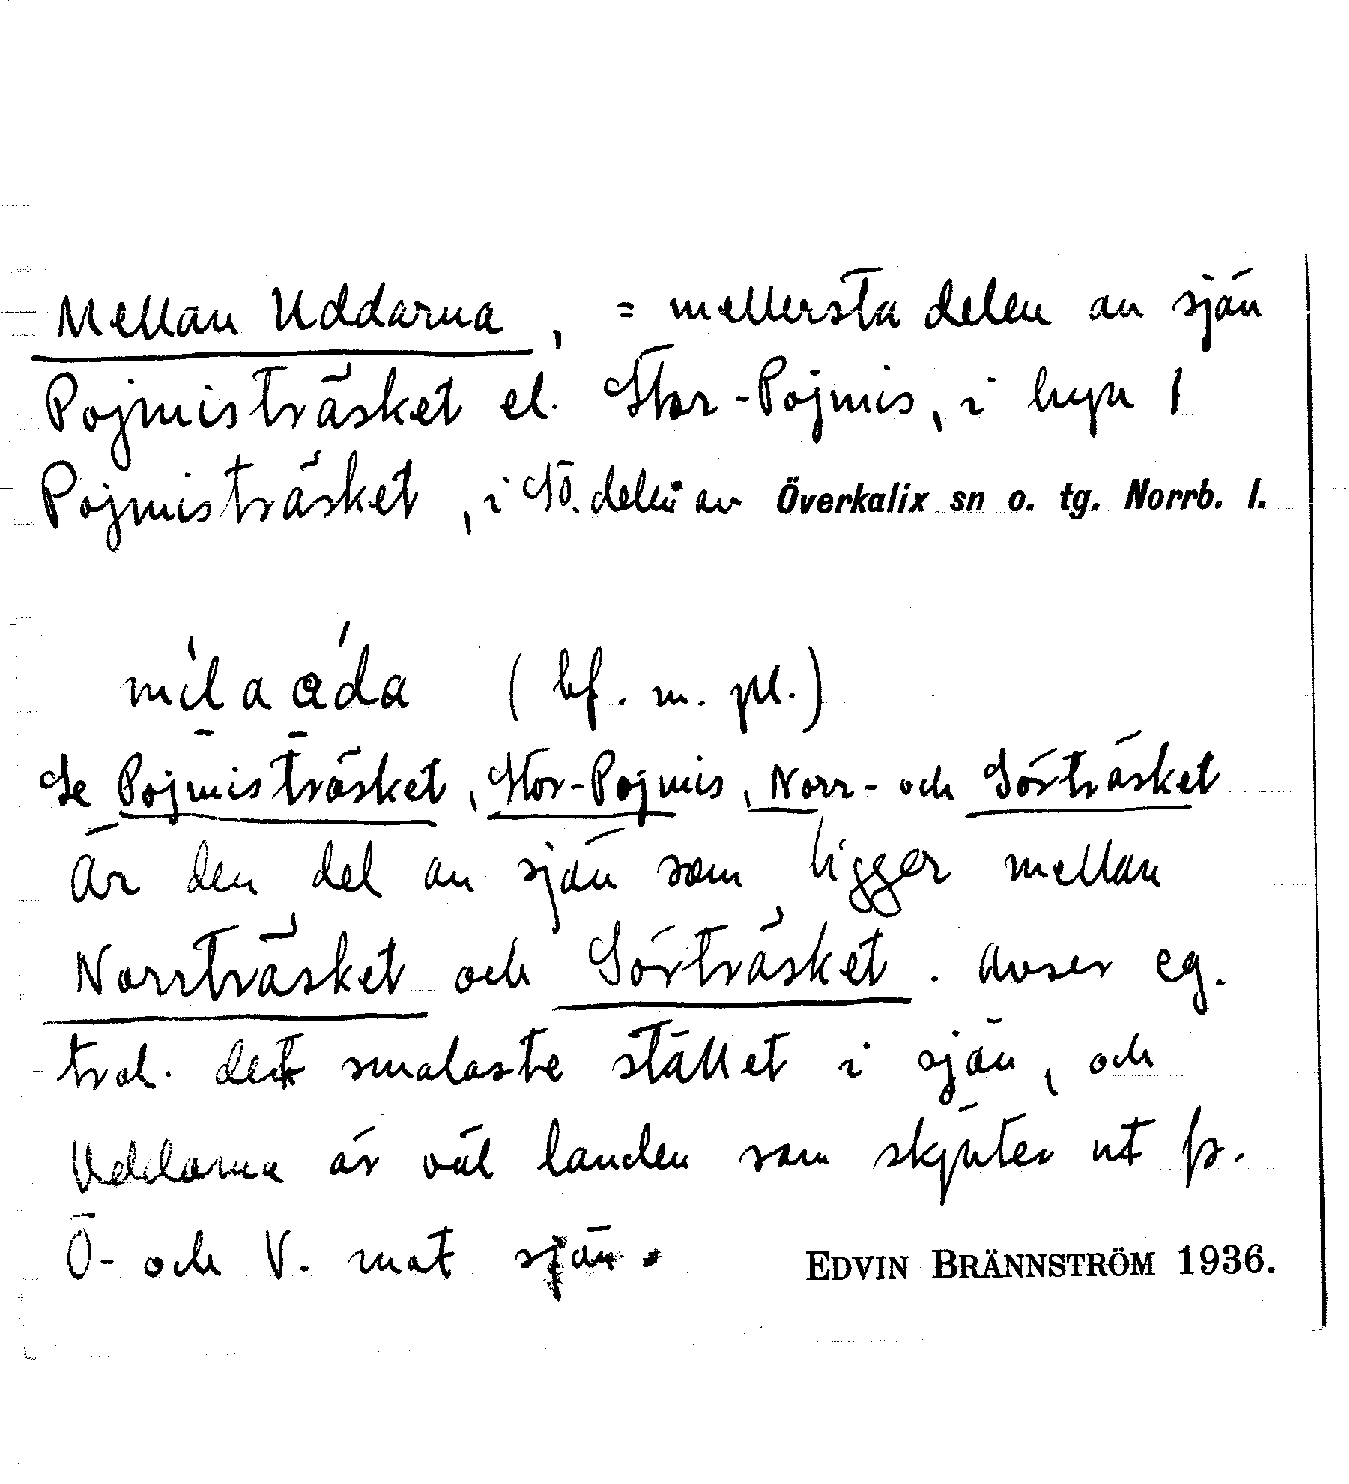 Mellan Uddarna, = mellersta delen av sjön
Pojmisträsket el. Stor-Pojmis, i byn
Pojmisträsket, i NÖ. delen av Överkalix sn o. tg. Norrb. l.
(bf. m. pl.)
Se Pojmisträsket, Stor-Pojmis, Norr- och Sörträsket
Är den del av sjön som ligger mellan
Norrträsket och Sörträsket. Avser eg.
trol. det smalaste stället i sjön, och
Uddarna är väl landen som skjuter ut fr.
Ö- och V. mot sjön.
EDVIN BRÄNNSTRÖM 1936.